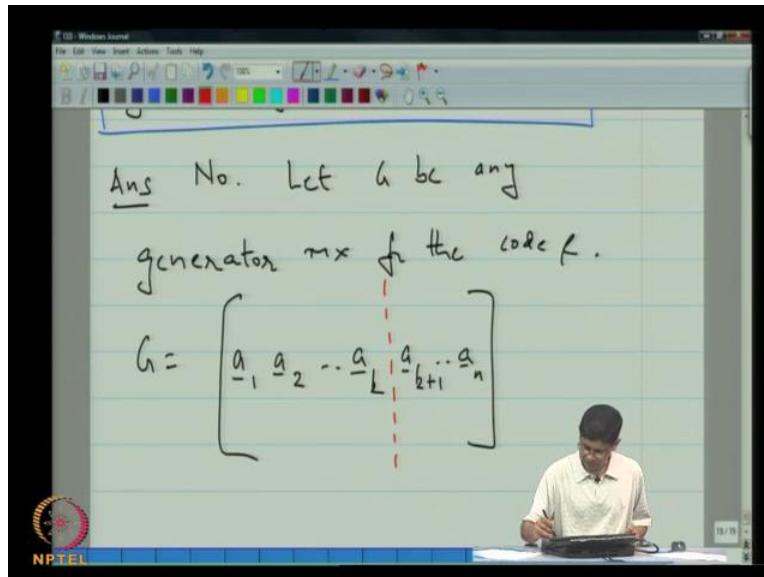 133 - Windows Journal
File Edit View Insert Actions Tools Help
100%
B I
Ans No. Let G be any
generator mx fr the code C.
G = [ a1 a2 .. ak ak+1 .. an ]
15/15
NPTEL